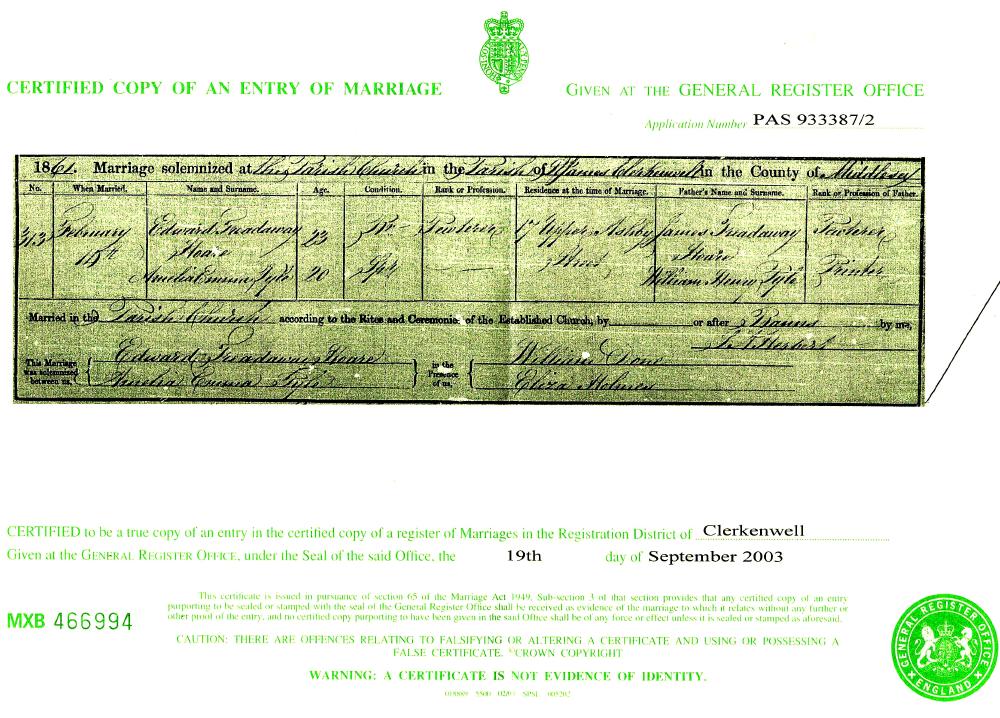 CERTIFIED COPY OF AN ENTRY OF MARRIAGE
GIVEN AT THE GENERAL REGISTER OFFICE
Application Number PAS 933387/2
1861. Marriage solemnized at the Parish Church in the Parish of St James Clerkenwell in the County of Middlesex
No. When Married. Name and Surname. Age. Condition. Rank or Profession. Residence at the time of Marriage. Father's Name and Surname. Rank or Profession of Father.
313 February Edward Treadaway 23 Br Pewterer 17 Upper Ashby James Treadaway Pewterer
Hoare Street Hoare
Amelia Emma Tyle 20 Spr William Henry Tyle Printer
Married in the Parish Church according to the Rites and Ceremonies of the Established Church, by or after Banns by me,
Herbert
This Marriage was solemnized between us, Edward Treadaway Hoare in the Presence of us, William
Amelia Emma Tyle Eliza Holmes
CERTIFIED to be a true copy of an entry in the certified copy of a register of Marriages in the Registration District of Clerkenwell
Given at the GENERAL REGISTER OFFICE, under the Seal of the said Office, the 19th day of September 2003
MXB 466994
This certificate is issued in pursuance of section 65 of the Marriage Act 1949. Sub-section 3 of that section provides that any certified copy of an entry
purporting to be sealed or stamped with the seal of the General Register Office shall be received as evidence of the marriage to which it relates without any further or
other proof of the entry, and no certified copy purporting to have been given in the said Office shall be of any force or effect unless it is sealed or stamped as aforesaid.
CAUTION: THERE ARE OFFENCES RELATING TO FALSIFYING OR ALTERING A CERTIFICATE AND USING OR POSSESSING A
FALSE CERTIFICATE. ©CROWN COPYRIGHT
WARNING: A CERTIFICATE IS NOT EVIDENCE OF IDENTITY.
GENERAL REGISTER OFFICE
ENGLAND